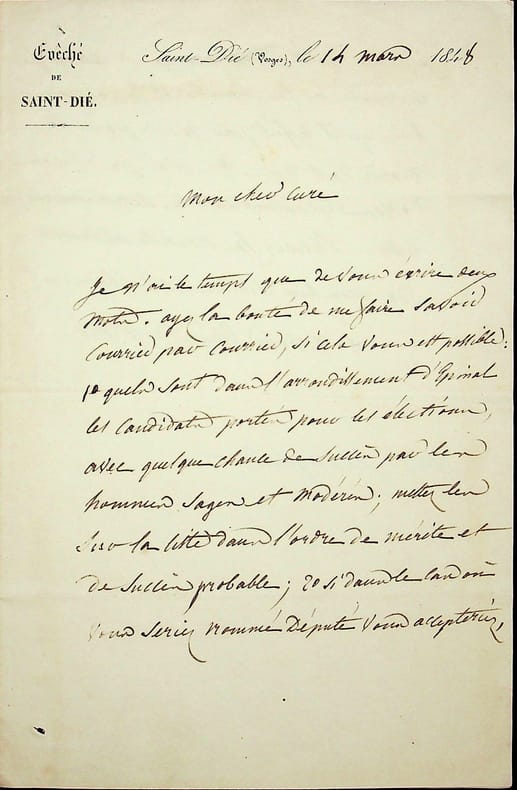 Evêché
DE
SAINT-DIÉ.
Saint-Dié (Vosges), le 14 mars 1848
Mon cher curé
Je n'ai le temps que de vous écrire deux
mots. ayez la bonté de me faire savoir
courrier par courrier, si cela vous est possible:
1º quels sont dans l'arrondissement d'Epinal
les candidats portés pour les élections,
avec quelque chance de succès par les
hommes sages et modérés; mettez les
sur la liste dans l'ordre de mérite et
de succès probable; 2º si dans le cas où
vous seriez nommé Député vous accepteriez,